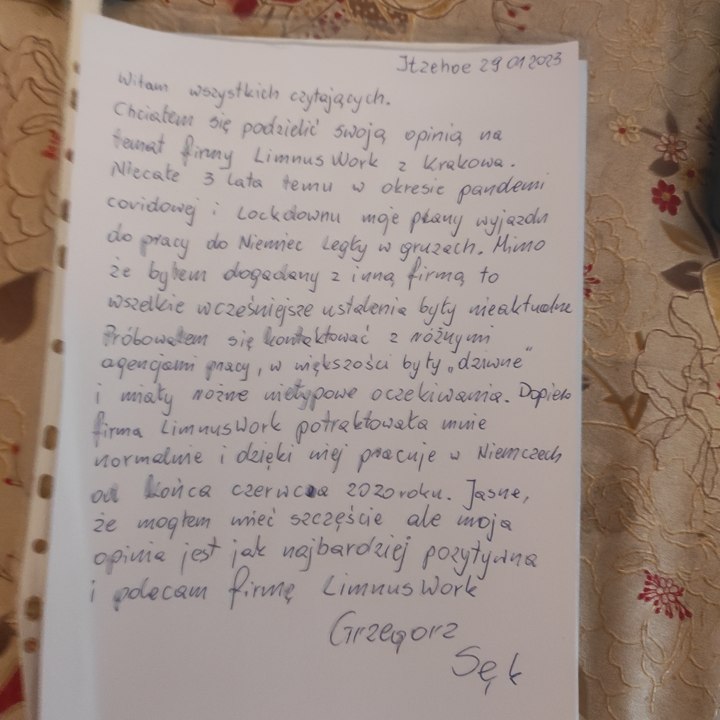 Itzehoe 29 01 2023
Witam wszystkich czytających.
Chciałem się podzielić swoją opinią na
temat firmy Limnus Work z Krakowa.
Niecałe 3 lata temu w okresie pandemi
covidowej i Lockdownu moje plany wyjazdu
do pracy do Niemiec legły w gruzach. Mimo
że byłem dogadany z inną firmą to
wszelkie wcześniejsze ustalenia były nieaktualne
Próbowałem się kontaktować z różnymi
agencjami pracy, w większości były „dziwne"
i miały różne nietypowe oczekiwania. Dopiero
firma LimnusWork potraktowała mnie
normalnie i dzięki niej pracuje w Niemczech
od końca czerwca 2020 roku. Jasne,
że mogłem mieć szczęście ale moja
opinia jest jak najbardziej pozytywna
i polecam firmę Limnus Work
Grzegorz
Sęk